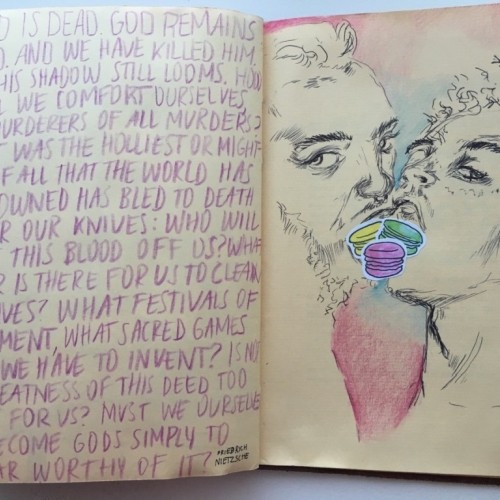 D IS DEAD. GOD REMAINS
D. AND WE HAVE KILLED HIM.
HIS SHADOW STILL LOOMS. HOW
L WE COMFORT OURSELVES,
MURDERERS OF ALL MURDERS?
T WAS THE HOLLIEST OR MIGHT-
OF ALL THAT THE WORLD HAS
OWNED HAS BLED TO DEATH
R OUR KNIVES: WHO WILL
THIS BLOOD OFF US? WHAT
R IS THERE FOR US TO CLEAN
LVES? WHAT FESTIVALS OF
MENT, WHAT SACRED GAMES
WE HAVE TO INVENT? IS NOT
EATNESS OF THIS DEED TOO
FOR US? MUST WE OURSELVE
ECOME GODS SIMPLY TO
AR WORTHY OF IT?
FRIEDRICH
NIETZSCHE